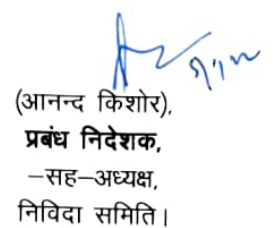 (आनन्द किशोर),
प्रबंध निदेशक,
–सह–अध्यक्ष,
निविदा समिति।